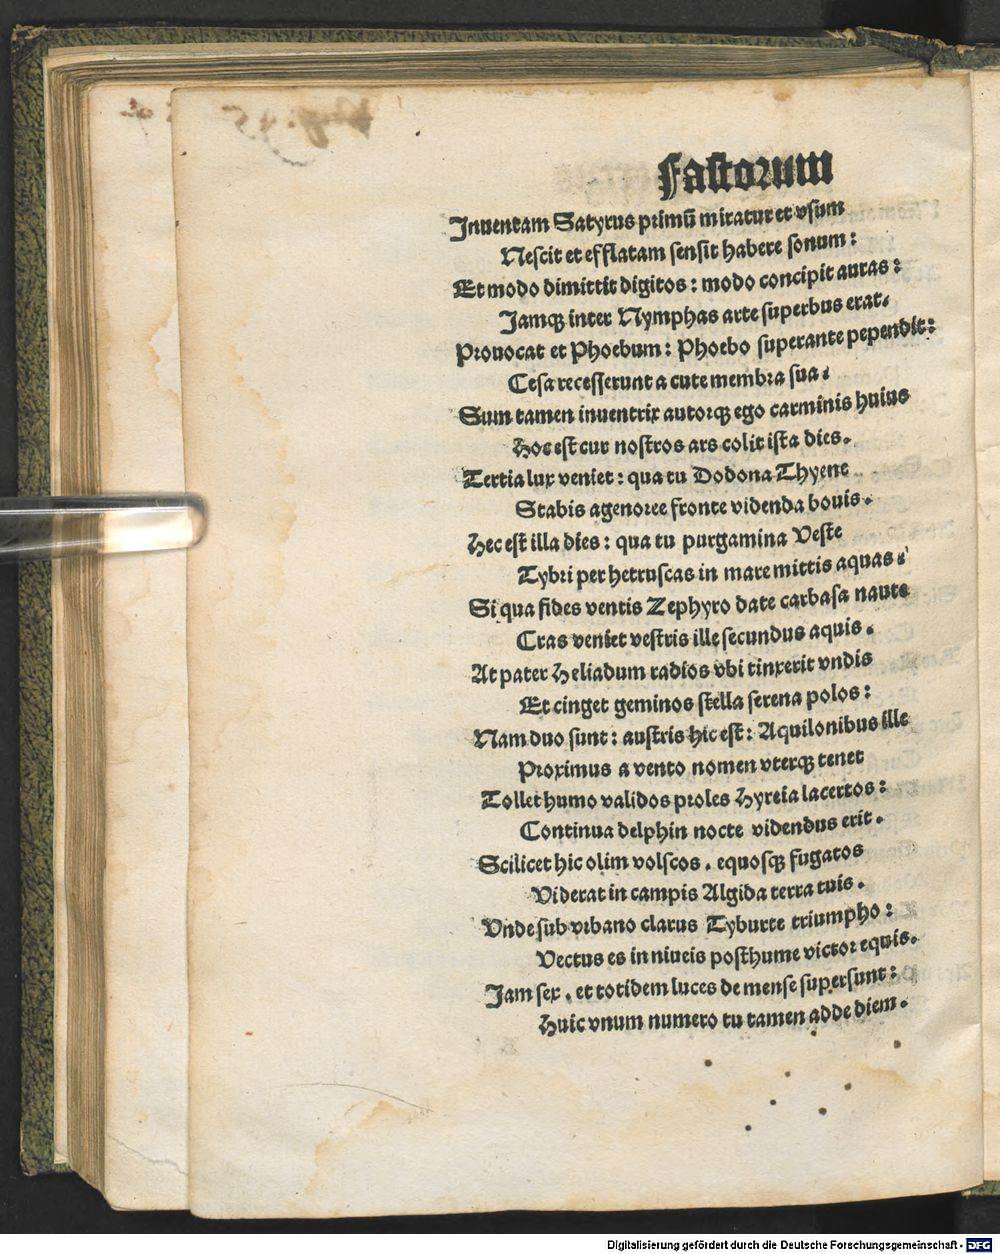 Fastorum
Inuentam Satyrus primū miratur et vsum
Nescit et efflatam sensit habere sonum:
Et modo dimittit digitos: modo concipit auras:
Jamqꝫ inter Nymphas arte superbus erat.
Prouocat et Phoebum: Phoebo superante pependit:
Cesa recesserunt a cute membra sua.
Sum tamen inuentrix autorqꝫ ego carminis huius
Hoc est cur nostros ars colit ista dies.
Tertia lux veniet: qua tu Dodona Thyene
Stabis agenoree fronte videnda bouis.
Hec est illa dies: qua tu purgamina Veste
Tybri per hetruscas in mare mittis aquas.
Si qua fides ventis Zephyro date carbasa naute
Cras veniet vestris ille secundus aquis.
At pater Heliadum radios vbi tinxerit vndis
Et cinget geminos stella serena polos:
Nam duo sunt: austris hic est: Aquilonibus ille
Proximus a vento nomen vterqꝫ tenet
Tollet humo validos proles Hyreia lacertos:
Continua delphin nocte videndus erit.
Scilicet hic olim volscos. equosqꝫ fugatos
Viderat in campis Algida terra tuis.
Vnde sub vrbano clarus Tyburte triumpho:
Vectus es in niueis posthume victor equis.
Jam sex. et totidem luces de mense supersunt:
Huic vnum numero tu tamen adde diem.
Digitalisierung gefördert durch die Deutsche Forschungsgemeinschaft - DFG